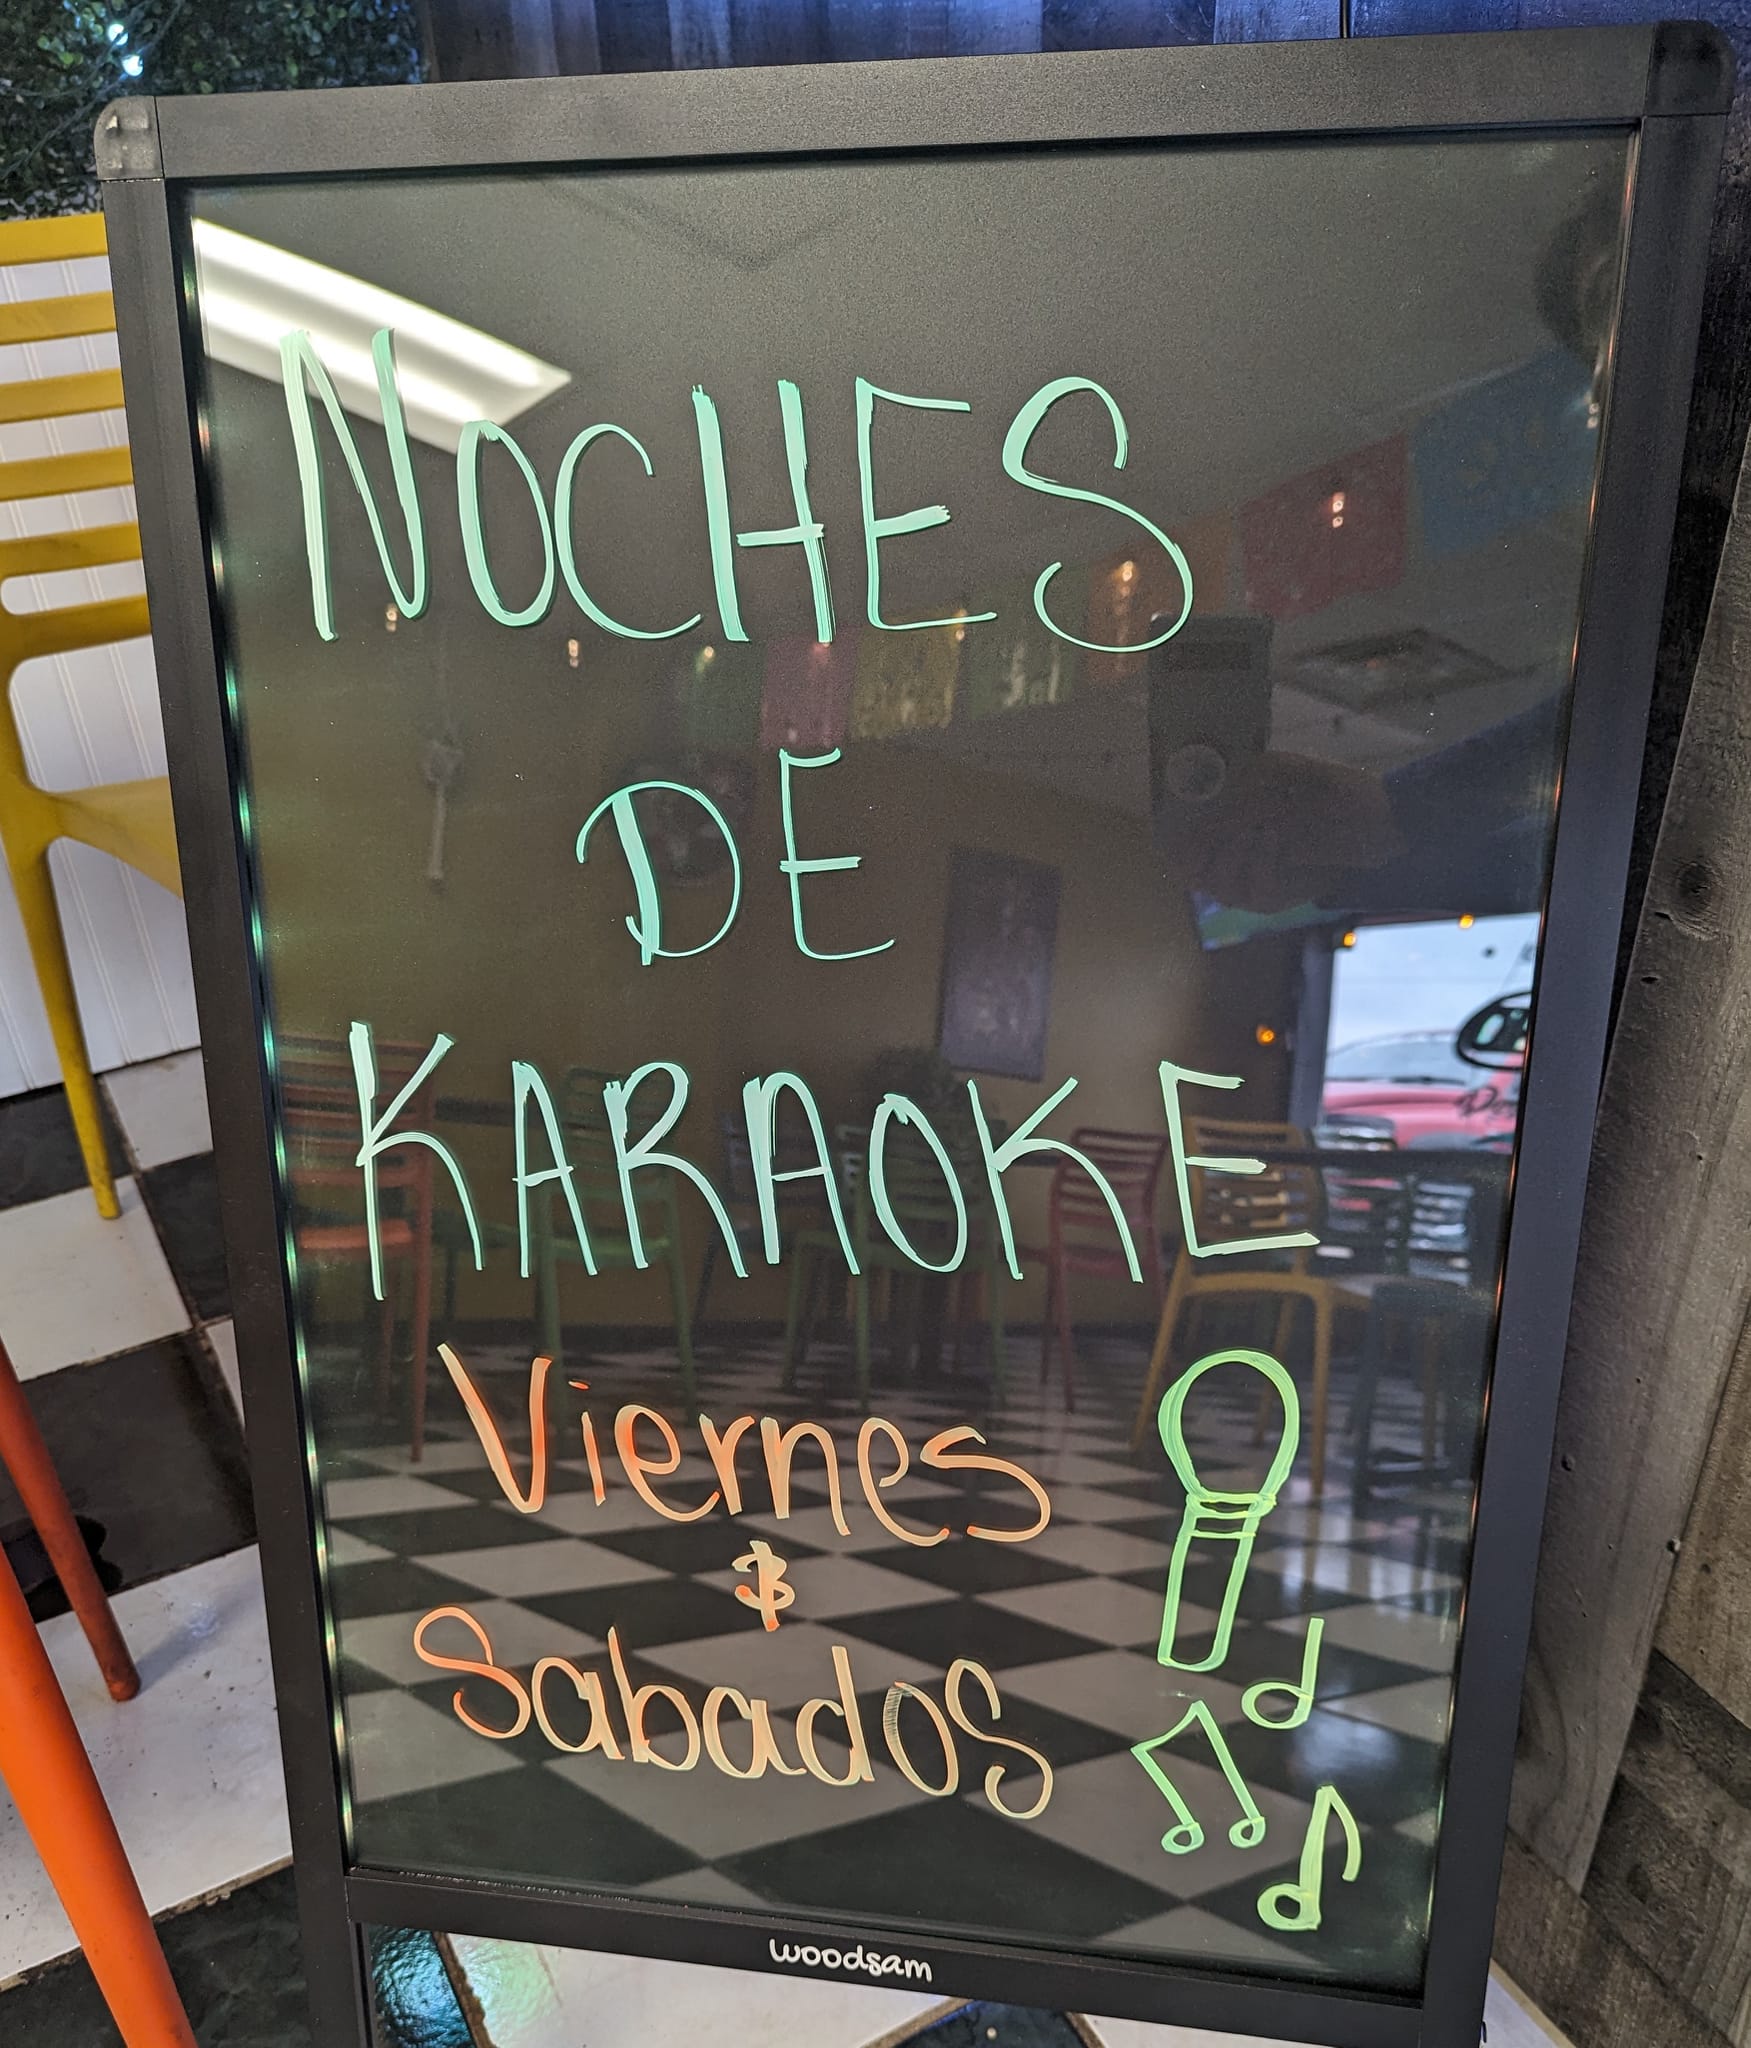 NOCHES
DE
KARAOKE
Viernes
&
Sabados
woodsam